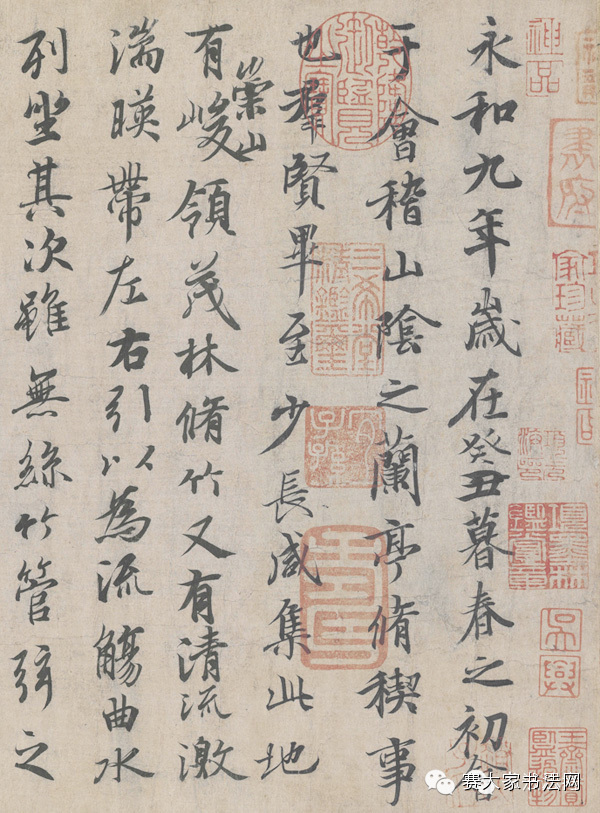 永和九年歲在癸丑暮春之初會
于會稽山陰之蘭亭脩稧事
也羣賢畢至少長咸集此地
有崇山峻領茂林脩竹又有清流激
湍暎帶左右引以為流觴曲水
列坐其次雖無絲竹管弦之
神品
家珍藏
三希堂精鑑璽
宜子孫
吳興
赛大家书法网